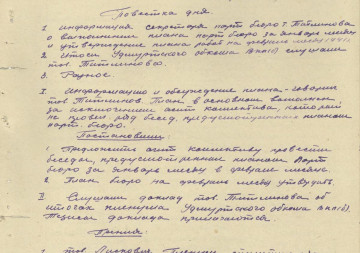 Повестка дня.
1. Информация секретаря парт бюро т. Титимнова
о выполнении плана парт бюро за январь месяц
и утверждение плана работ на февраль месяц
2. Итоги Удмуртского обкома слушали
тов.
3. Разное.
I. Информацию и обсуждение плана - говорил
тов План в основном выполнен
за исключением агит коллектива, который
не провел ряд бесед, предусмотренных планом
парт. бюро.
Постановили:
1. Предложить агит коллективу провести
беседы, предусмотренные планом парт
бюро за январь месяц в феврале месяце.
2. План бюро на февраль месяц утвердить.
II Слушали доклад тов. об
итогах пленума Удмуртского обкома ВКП(б).
Тезисы доклада прилагаются.
Прения
1. тов.